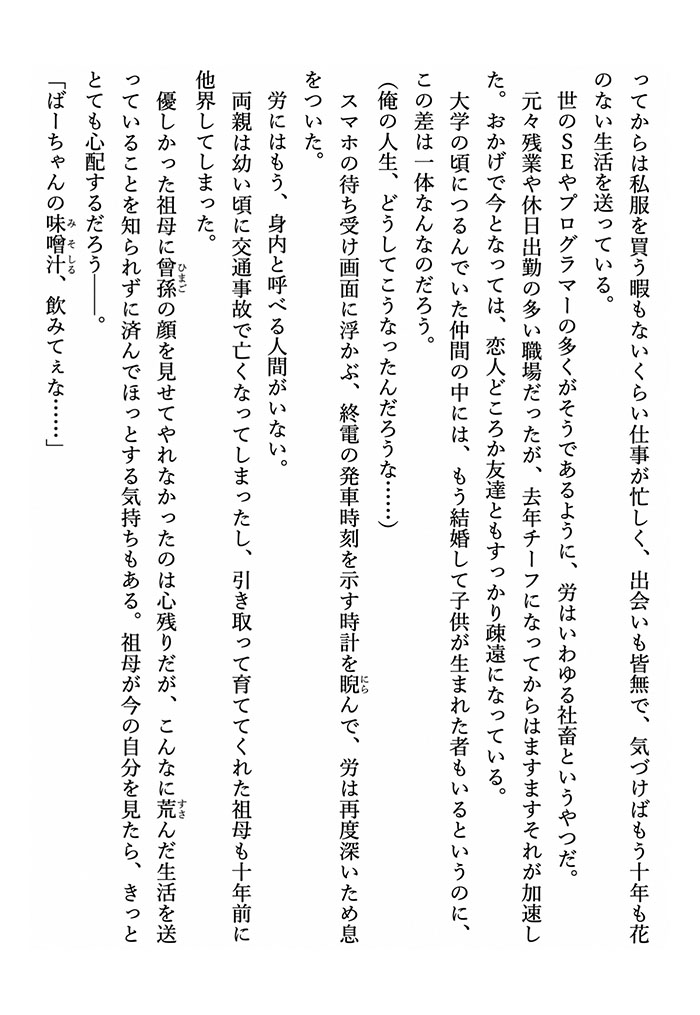 ってからは私服を買う暇もないくらい仕事が忙しく、出会いも皆無で、気づけばもう十年も花
のない生活を送っている。
世のSEやプログラマーの多くがそうであるように、労はいわゆる社畜というやつだ。
元々残業や休日出勤の多い職場だったが、去年チーフになってからはますますそれが加速し
た。おかげで今となっては、恋人どころか友達ともすっかり疎遠になっている。
大学の頃につるんでいた仲間の中には、もう結婚して子供が生まれた者もいるというのに、
この差は一体なんなのだろう。
(俺の人生、どうしてこうなったんだろうな……)
スマホの待ち受け画面に浮かぶ、終電の発車時刻を示す時計を睨んで、労は再度深いため息
をついた。
労にはもう、身内と呼べる人間がいない。
両親は幼い頃に交通事故で亡くなってしまったし、引き取って育ててくれた祖母も十年前に
他界してしまった。
優しかった祖母に曾孫の顔を見せてやれなかったのは心残りだが、こんなに荒んだ生活を送
っていることを知られずに済んでほっとする気持ちもある。祖母が今の自分を見たら、きっと
とても心配するだろう――。
「ばーちゃんの味噌汁、飲みてぇな……」